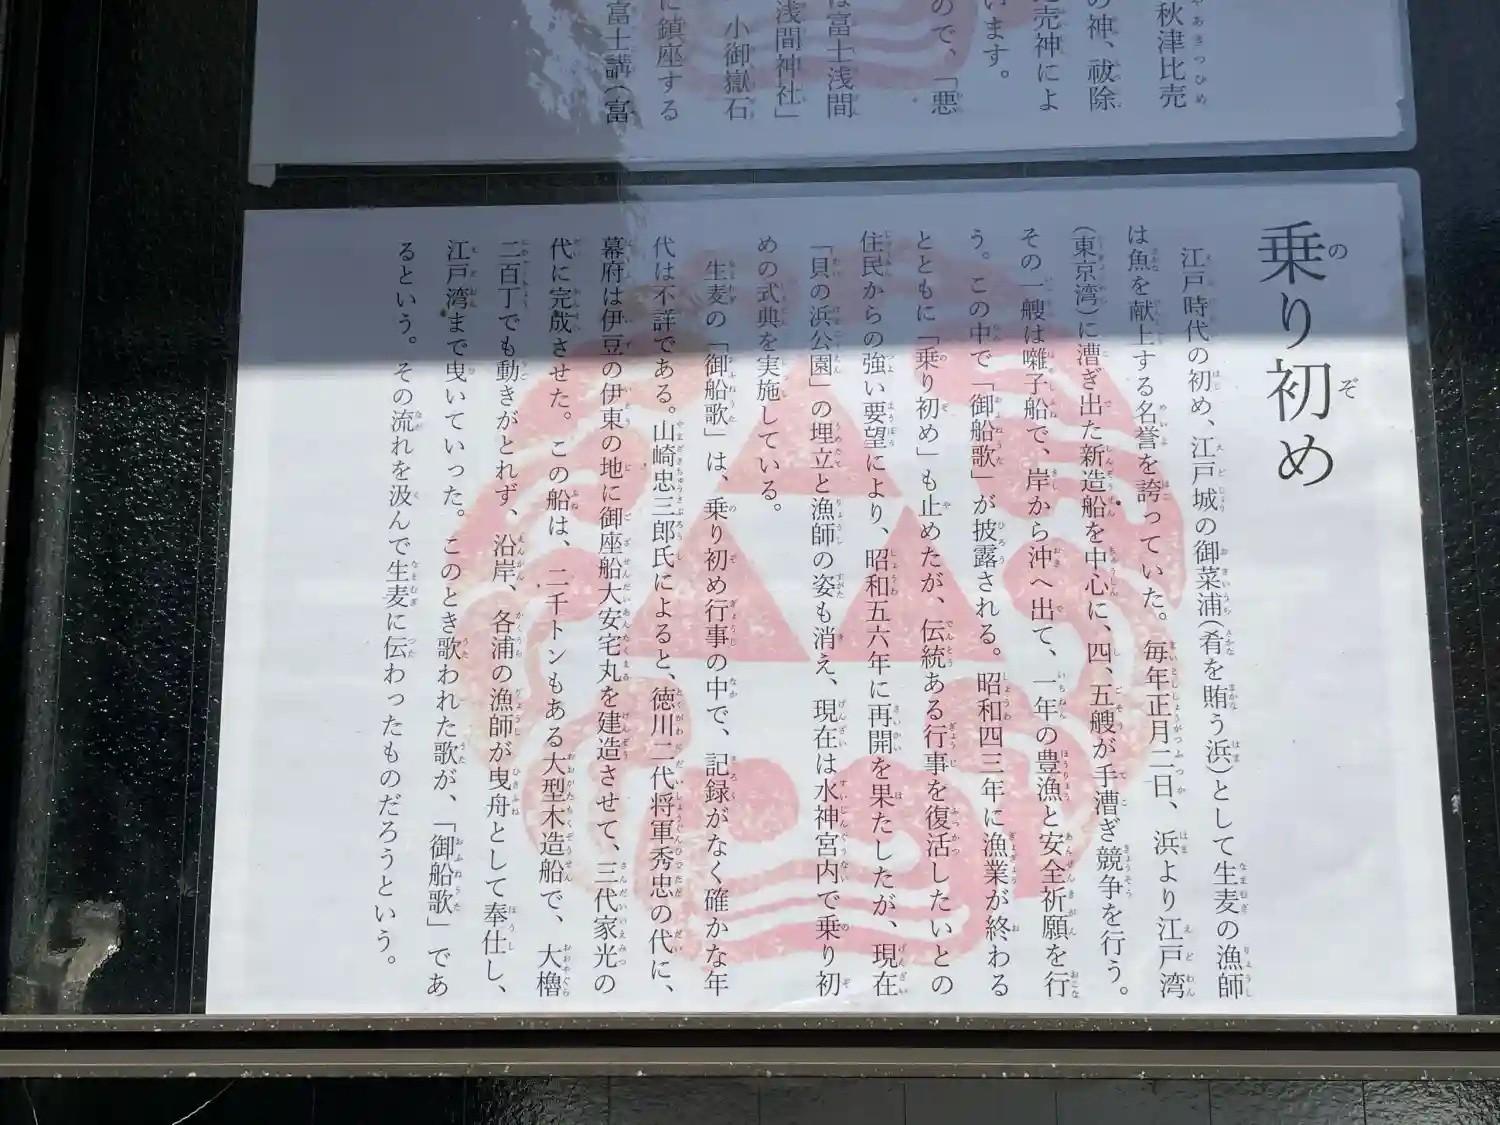 秋津比売
やあきつひめ
の神、祓除
売神によ
います。
ので、「悪
は富士浅間
浅間神社」
小御嶽石
に鎮座する
富士講(富
乗り初め
江戸時代の初め、江戸城の御菜浦(肴を賄う浜)として生麦の漁師
は魚を献上する名誉を誇っていた。毎年正月二日、浜より江戸湾
(東京湾)に漕ぎ出た新造船を中心に、四、五艘が手漕ぎ競争を行う。
その一艘は囃子船で、岸から沖へ出て、一年の豊漁と安全祈願を行
う。この中で「御船歌」が披露される。昭和四三年に漁業が終わる
とともに「乗り初め」も止めたが、伝統ある行事を復活したいとの
住民からの強い要望により、昭和五六年に再開を果たしたが、現在
「貝の浜公園」の埋立と漁師の姿も消え、現在は水神宮内で乗り初
めの式典を実施している。
生麦の「御船歌」は、乗り初め行事の中で、記録がなく確かな年
代は不詳である。山崎忠三郎氏によると、徳川二代将軍秀忠の代に、
幕府は伊豆の伊東の地に御座船大安宅丸を建造させて、三代家光の
代に完成させた。この船は、二千トンもある大型木造船で、大櫓
二百丁でも動きがとれず、沿岸、各浦の漁師が曳舟として奉仕し、
江戸湾まで曳いていった。このとき歌われた歌が、「御船歌」であ
るという。その流れを汲んで生麦に伝わったものだろうという。